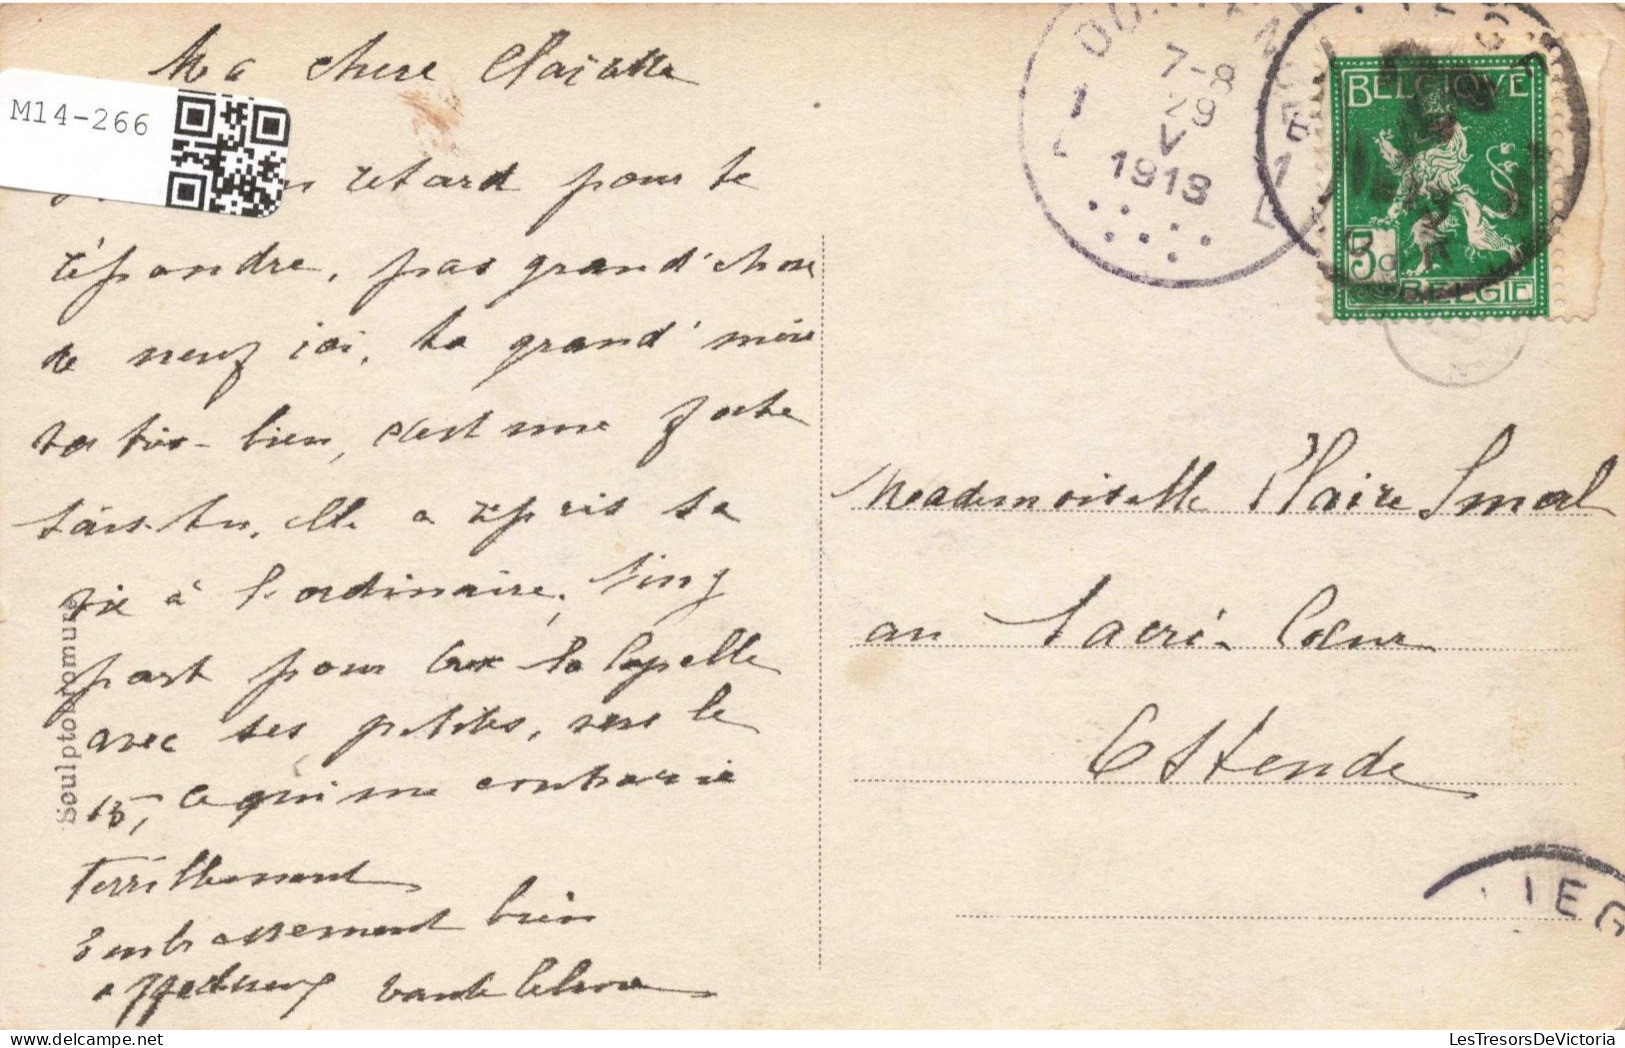 Ma chere Clairette
M14-266
retard pour te
répondre, pas grand'chose
de neuf ici, ta grand'mère
va très-bien, c'est une forte
sais-tu, elle a repris sa
vie à l'ordinaire,
part pour la Capelle
avec ses petites, vers le
15, ce qui me contrarie
Terriblement
Embrassement bien
affectueux tante
Mademoiselle Claire Smal
au Sacré-Coeur
Ostende
BELGIQUE
5c
BELGIË
7-8
29
V
1913
LIEG
LesTresorsDeVictoria